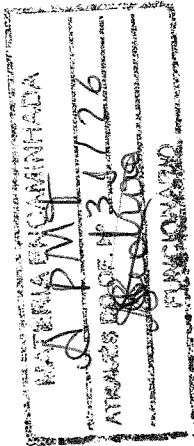 MATÉRIA ENCAMINHADA
À PMI
ATRAVÉS DO OF. Nº 31/26
FUNCIONÁRIO